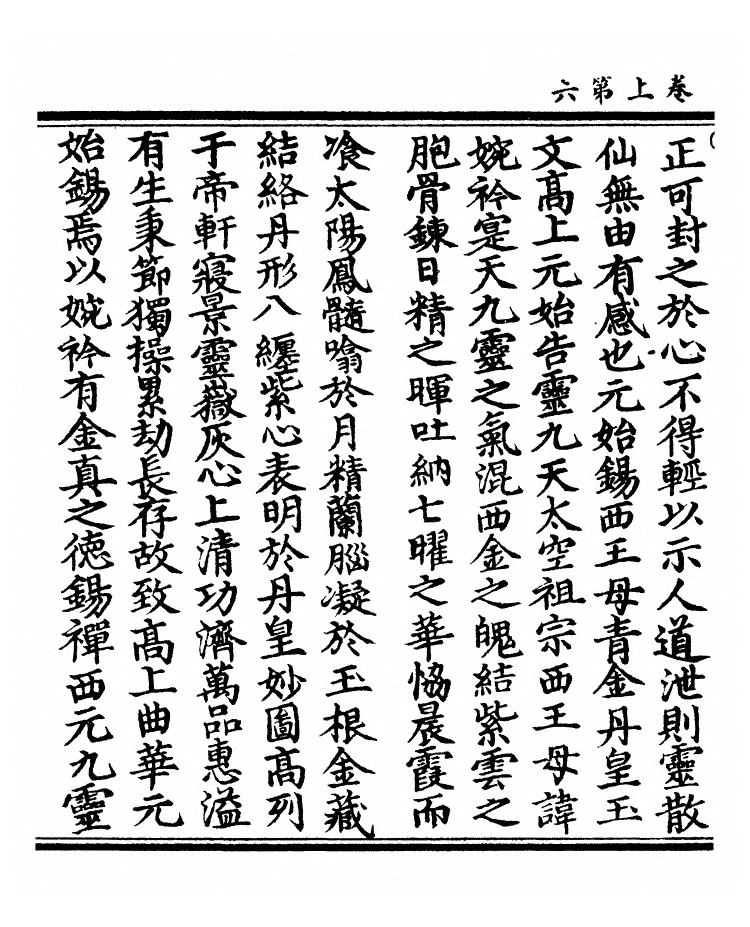 卷上第六
正可封之於心不得輕以示人道泄則靈散
仙無由有感也元始錫西王母青金丹皇玉
文高上元始告靈九天太空祖宗西王母諱
婉衿寔天九靈之氣混西金之魄結紫雲之
胞骨鍊日精之暉吐納七曜之華恊晨霞而
飡太陽鳳髓噏於月精蘭腦凝於玉根金藏
結絡丹形八纏紫心表明於丹皇妙圖高列
于帝軒寢景靈嶽灰心上清功濟萬品惠溢
有生秉節獨操累劫長存故致高上曲華元
始錫焉以婉衿有金真之德錫禪西元九靈